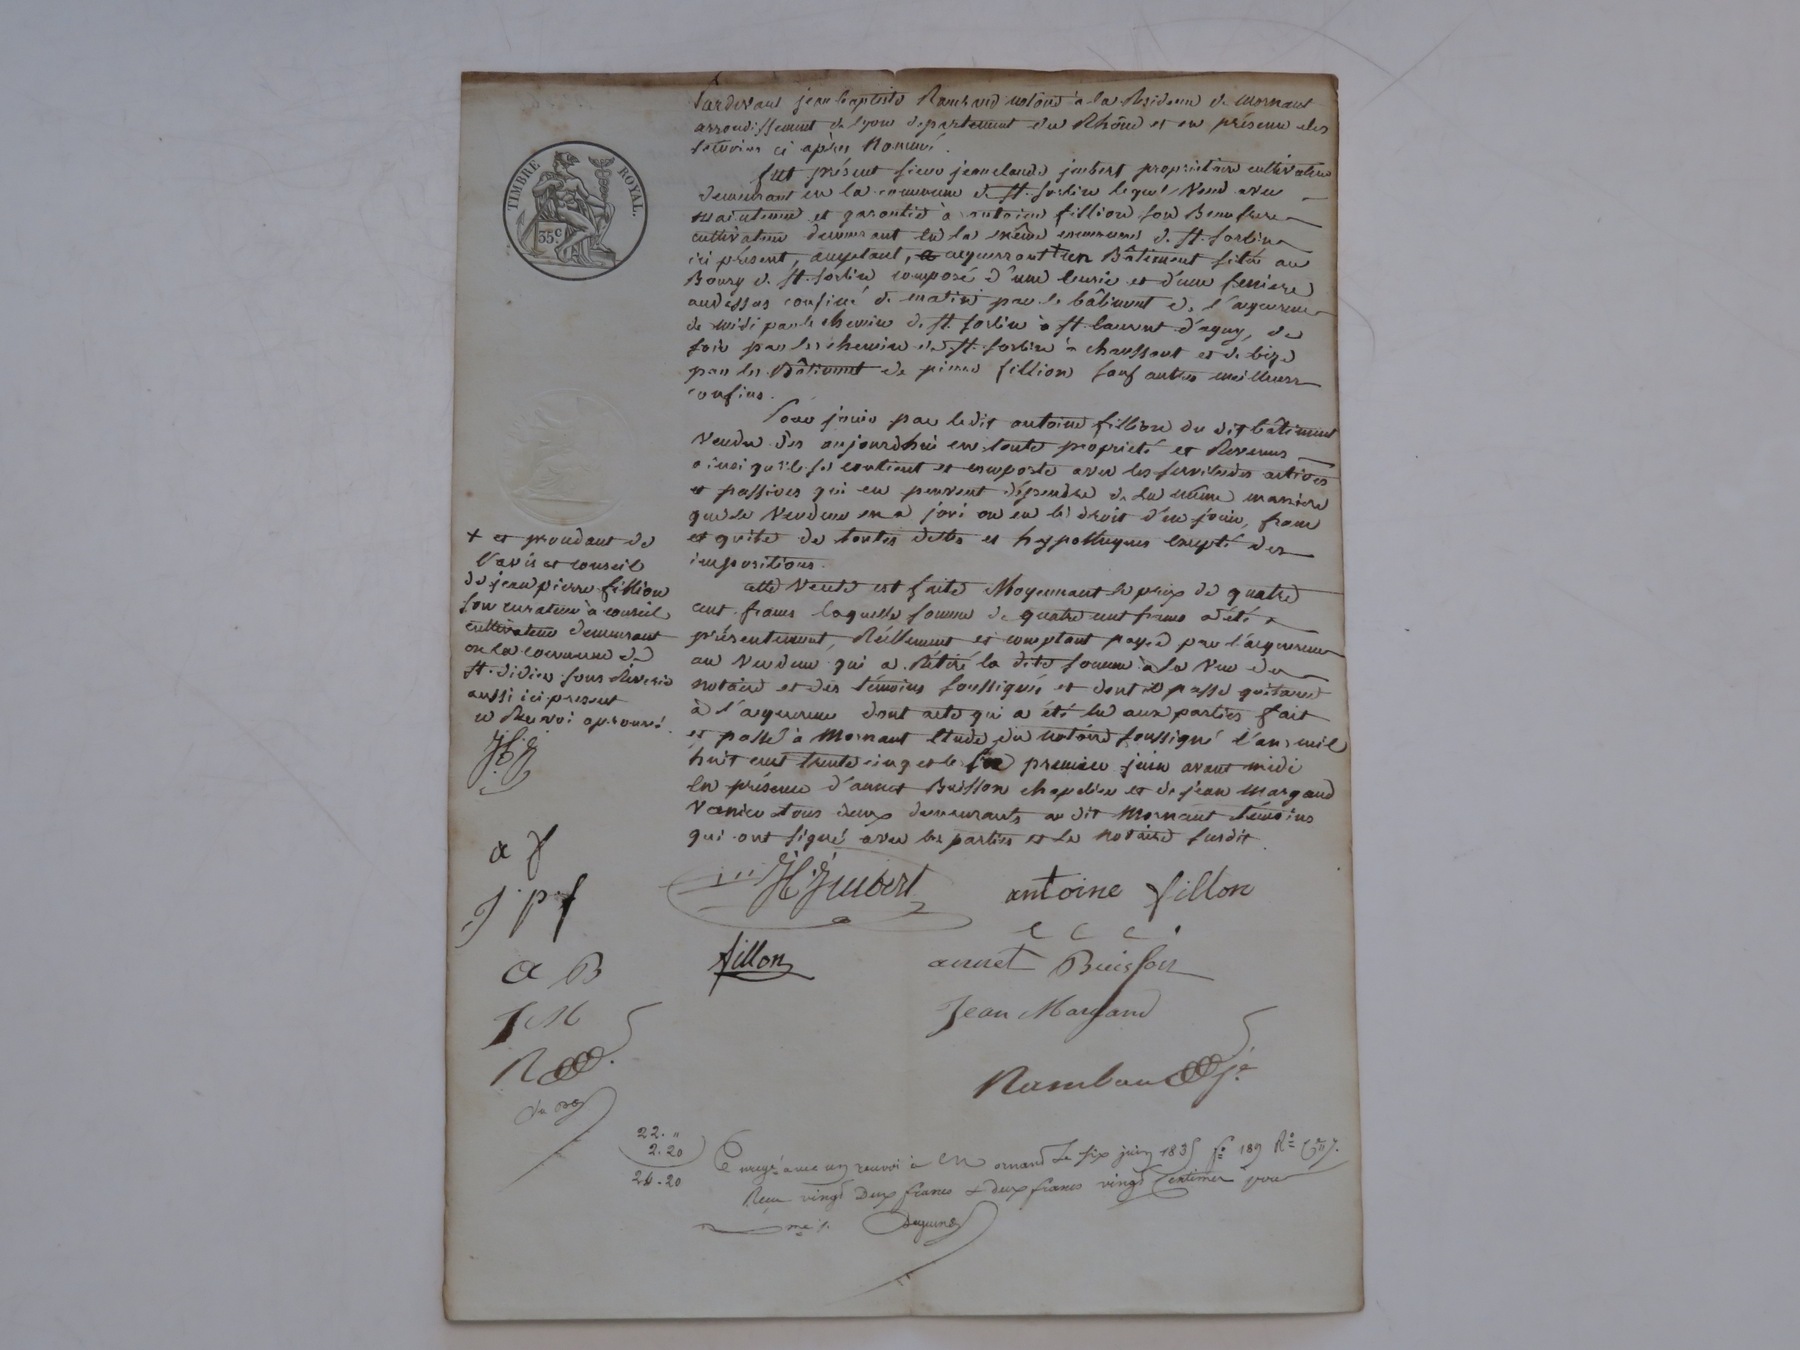 TIMBRE ROYAL.
35c
Pardevant jean baptiste Rambaud notaire à la Residence de Mornant
arrondissement de Lyon departement du Rhône et en présence des
témoins ci après Nommé.
fut présent sieur jean claude joubert propriétaire cultivateur
demeurant en la commune de St. Sorlin lequel Vend avec
maintenue et garantie à antoine fillion son Beau frere
cultivateur demeurant en la même commune de St. Sorlin
ici présent, acceptant, acquerrant + un Bâtiment situé au
Bourg de St. Sorlin composé d'une écurie et d'une feniere
audessus confiné de matin par le bâtiment de l'acquereur
de midi par le chemin de St. Sorlin à St. Laurent d'agny, de
soir par le chemin de St. Sorlin à chaussant et de bize
par le Bâtiment de pierre fillion sauf autres meilleurs
confins.
Pour jouir par ledit antoine fillion du dit bâtiment
Vendu dès aujourdhui en toute propriété et Revenus
ainsi qu'il se contient et comporte avec les servitudes actives
et passives qui en peuvent dépendre de la même maniere
que le Vendeur en a joui ou eu le droit d'en jouir, franc
et quitte de toutes dettes et hypotheques excepté des
impositions.
cette Vente est faite Moyennant le prix de quatre
cent francs laquelle somme de quatre cent francs a été
présentement, Réellement et comptant payée par l'acquereur
au Vendeur qui a Retiré la dite somme à la Vue du
notaire et des témoins soussignés et dont il passe quitance
à l'acquereur dont acte qui a été lu aux parties fait
et passé à Mornant Etude du notaire soussigné l'an mil
huit cent trente cinq et le premier juin avant midi
En présence d'annet Buisson chapelier et de jean Margand
Vanier tous deux demeurants au dit Mornant témoins
qui ont signé avec les parties et le notaire susdit.
+ et procedant de
l'avis et conseil
de jean pierre fillion
son curateur à conseil
cultivateur demeurant
en la commune de
St. Didier sous Riverie
aussi ici present
ce Renvoi approuvé.
a f
J p f
a B
J M
R
J C Jubert
antoine fillon
fillon
annet Buisson
Jean Margand
Rambaud
22. "
2.20
24.20
Enregé avec un renvoi à Mornand Le six juin 1835 fo 189 Ro
Reçu vingt Deux francs & deux francs vingt Centimes pour